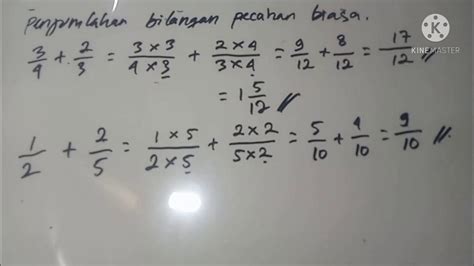 Penjumlahan bilangan pecahan biasa.
3/4 + 2/3 = 3×3/4×3 + 2×4/3×4 = 9/12 + 8/12 = 17/12 //
= 1 5/12 //
1/2 + 2/5 = 1×5/2×5 + 2×2/5×2 = 5/10 + 4/10 = 9/10 //.
K
KINEMASTER